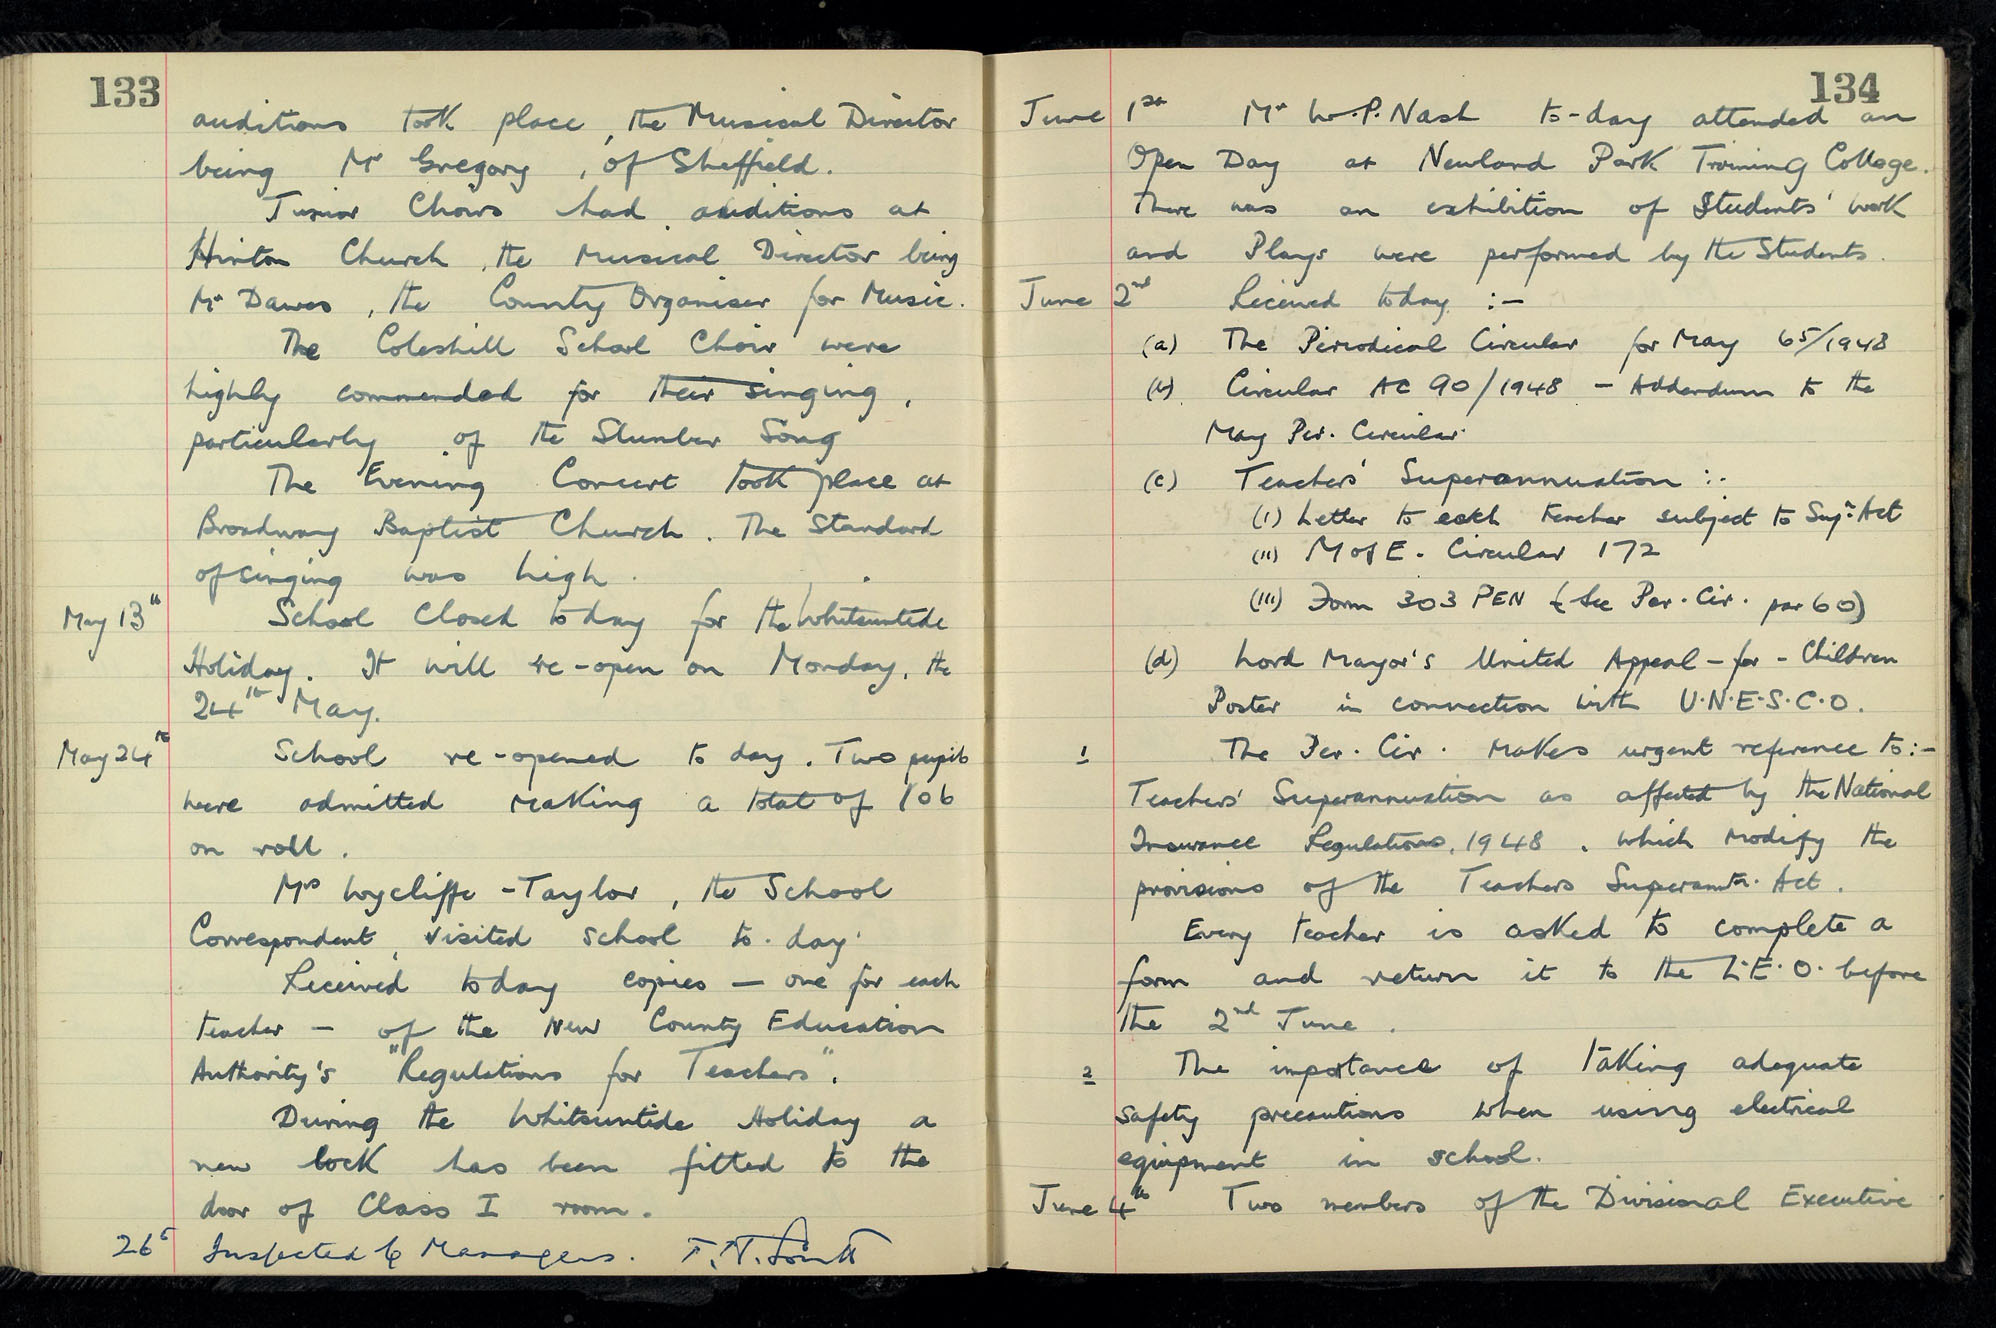 133
auditions took place, the Musical Director
being Mr Gregory, of Sheffield.
Junior Choirs had auditions at
Hinton Church, the Musical Director being
Mr Dawes, the County Organiser for Music.
The Coleshill School Choir were
highly commended for their singing,
particularly of the Slumber Song
The Evening Concert took place at
Broadway Baptist Church. The Standard
of singing was high.
May 13th School Closed today for the Whitsuntide
Holiday. It will re-open on Monday, the
24th May.
May 24th School re-opened to day. Two pupils
were admitted making a total of 106
on roll.
Mrs Wycliffe-Taylor, the School
Correspondent, visited school to-day.
Received today copies — one for each
teacher — of the New County Education
Authority's "Regulations for Teachers".
During the Whitsuntide Holiday a
new lock has been fitted to the
door of Class I room.
26th Inspected by Managers.
134
June 1st Mr W.P. Nash to-day attended an
Open Day at Newland Park Training College.
There was an exhibition of Students' work
and Plays were performed by the Students.
June 2nd Received today :—
(a) The Periodical Circular for May 65/1948
(b) Circular AC 90/1948 — Addendum to the
May Per. Circular.
(c) Teachers' Superannuation :-
(i) Letter to each teacher subject to Supn Act
(ii) M of E. Circular 172
(iii) Form 303 PEN (See Per. Cir. par 60)
(d) Lord Mayor's United Appeal-for-Children
Poster in connection with U.N.E.S.C.O.
1 The Per. Cir. makes urgent reference to:-
Teachers' Superannuation as affected by the National
Insurance Regulations, 1948, which modify the
provisions of the Teachers Superanntn. Act.
Every teacher is asked to complete a
form and return it to the L.E.O. before
the 2nd June.
2 The importance of taking adequate
safety precautions when using electrical
equipment in school.
June 4th Two members of the Divisional Executive